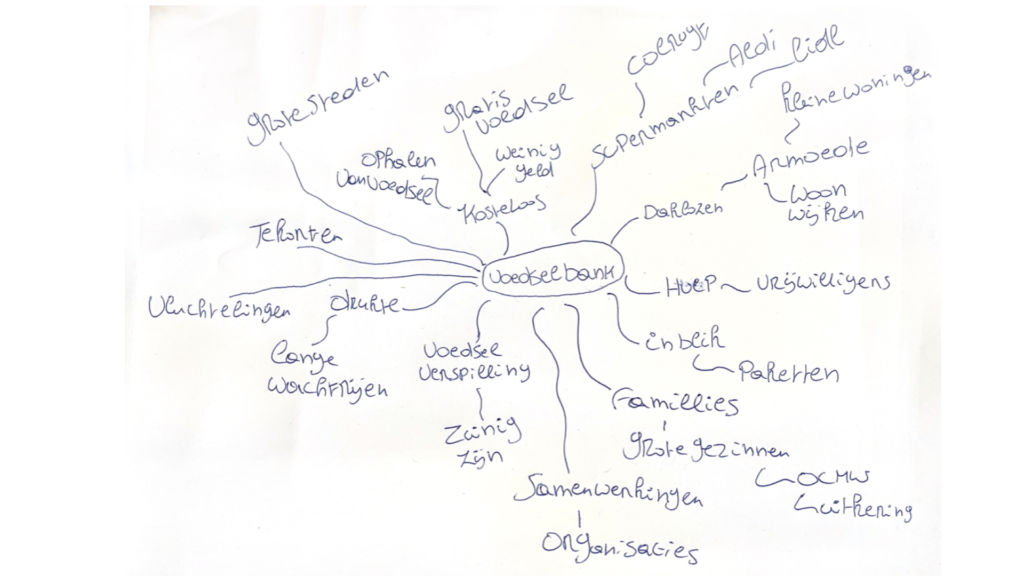 colruyt
Aldi
Lidl
grote steden
gratis
voedsel
supermarkten
kleine woningen
ophalen
van voedsel
weinig
geld
Armoede
kosteloos
Daklozen
woon
wijken
Tekorten
voedselbank
Hulp
vrijwilligers
Vluchtelingen
drukte
inblik
lange
wachtrijen
voedsel
verspilling
Paketten
Famillies
Zuinig
zijn
grote gezinnen
OCMW
uitkering
Samenwerkingen
organisaties